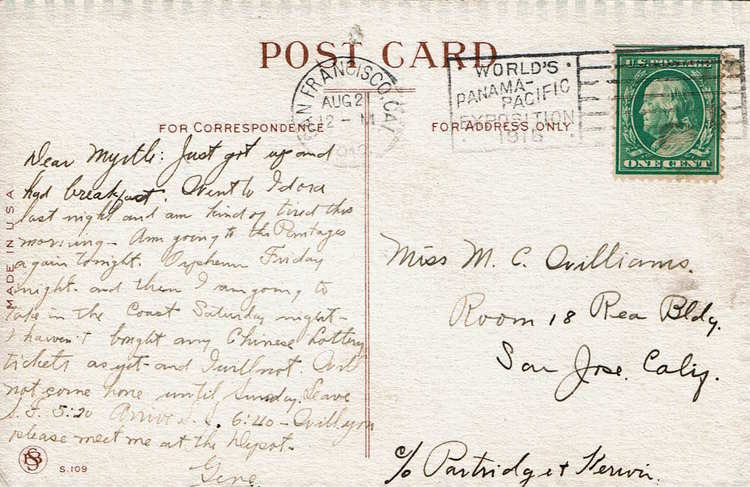 POST CARD
SAN FRANCISCO, CAL
AUG 2
12 - M
WORLD'S
PANAMA-
PACIFIC
EXPOSITION
1915
U.S. POSTAGE
ONE CENT
FOR CORRESPONDENCE
FOR ADDRESS ONLY
Dear Myrtle: Just got up and
had breakfast. Went to Idora
last night and am kind of tired this
morning - Am going to the Pantages
again tonight. Orpheum Friday
night. and then I am going to
take in the Coast Saturday night -
I haven't bought any Chinese Lottery
tickets as yet - and I will not. Will
not come home until Sunday. Leave
S.F. 5:20 Arrive S.J. 6:40 - Will you
please meet me at the Depot -
Gene
Miss M. C. Williams.
Room 18 Rea Bldg.
San Jose. Calif.
c/o Partridge & Kerwin.
MADE IN U.S.A
S.109